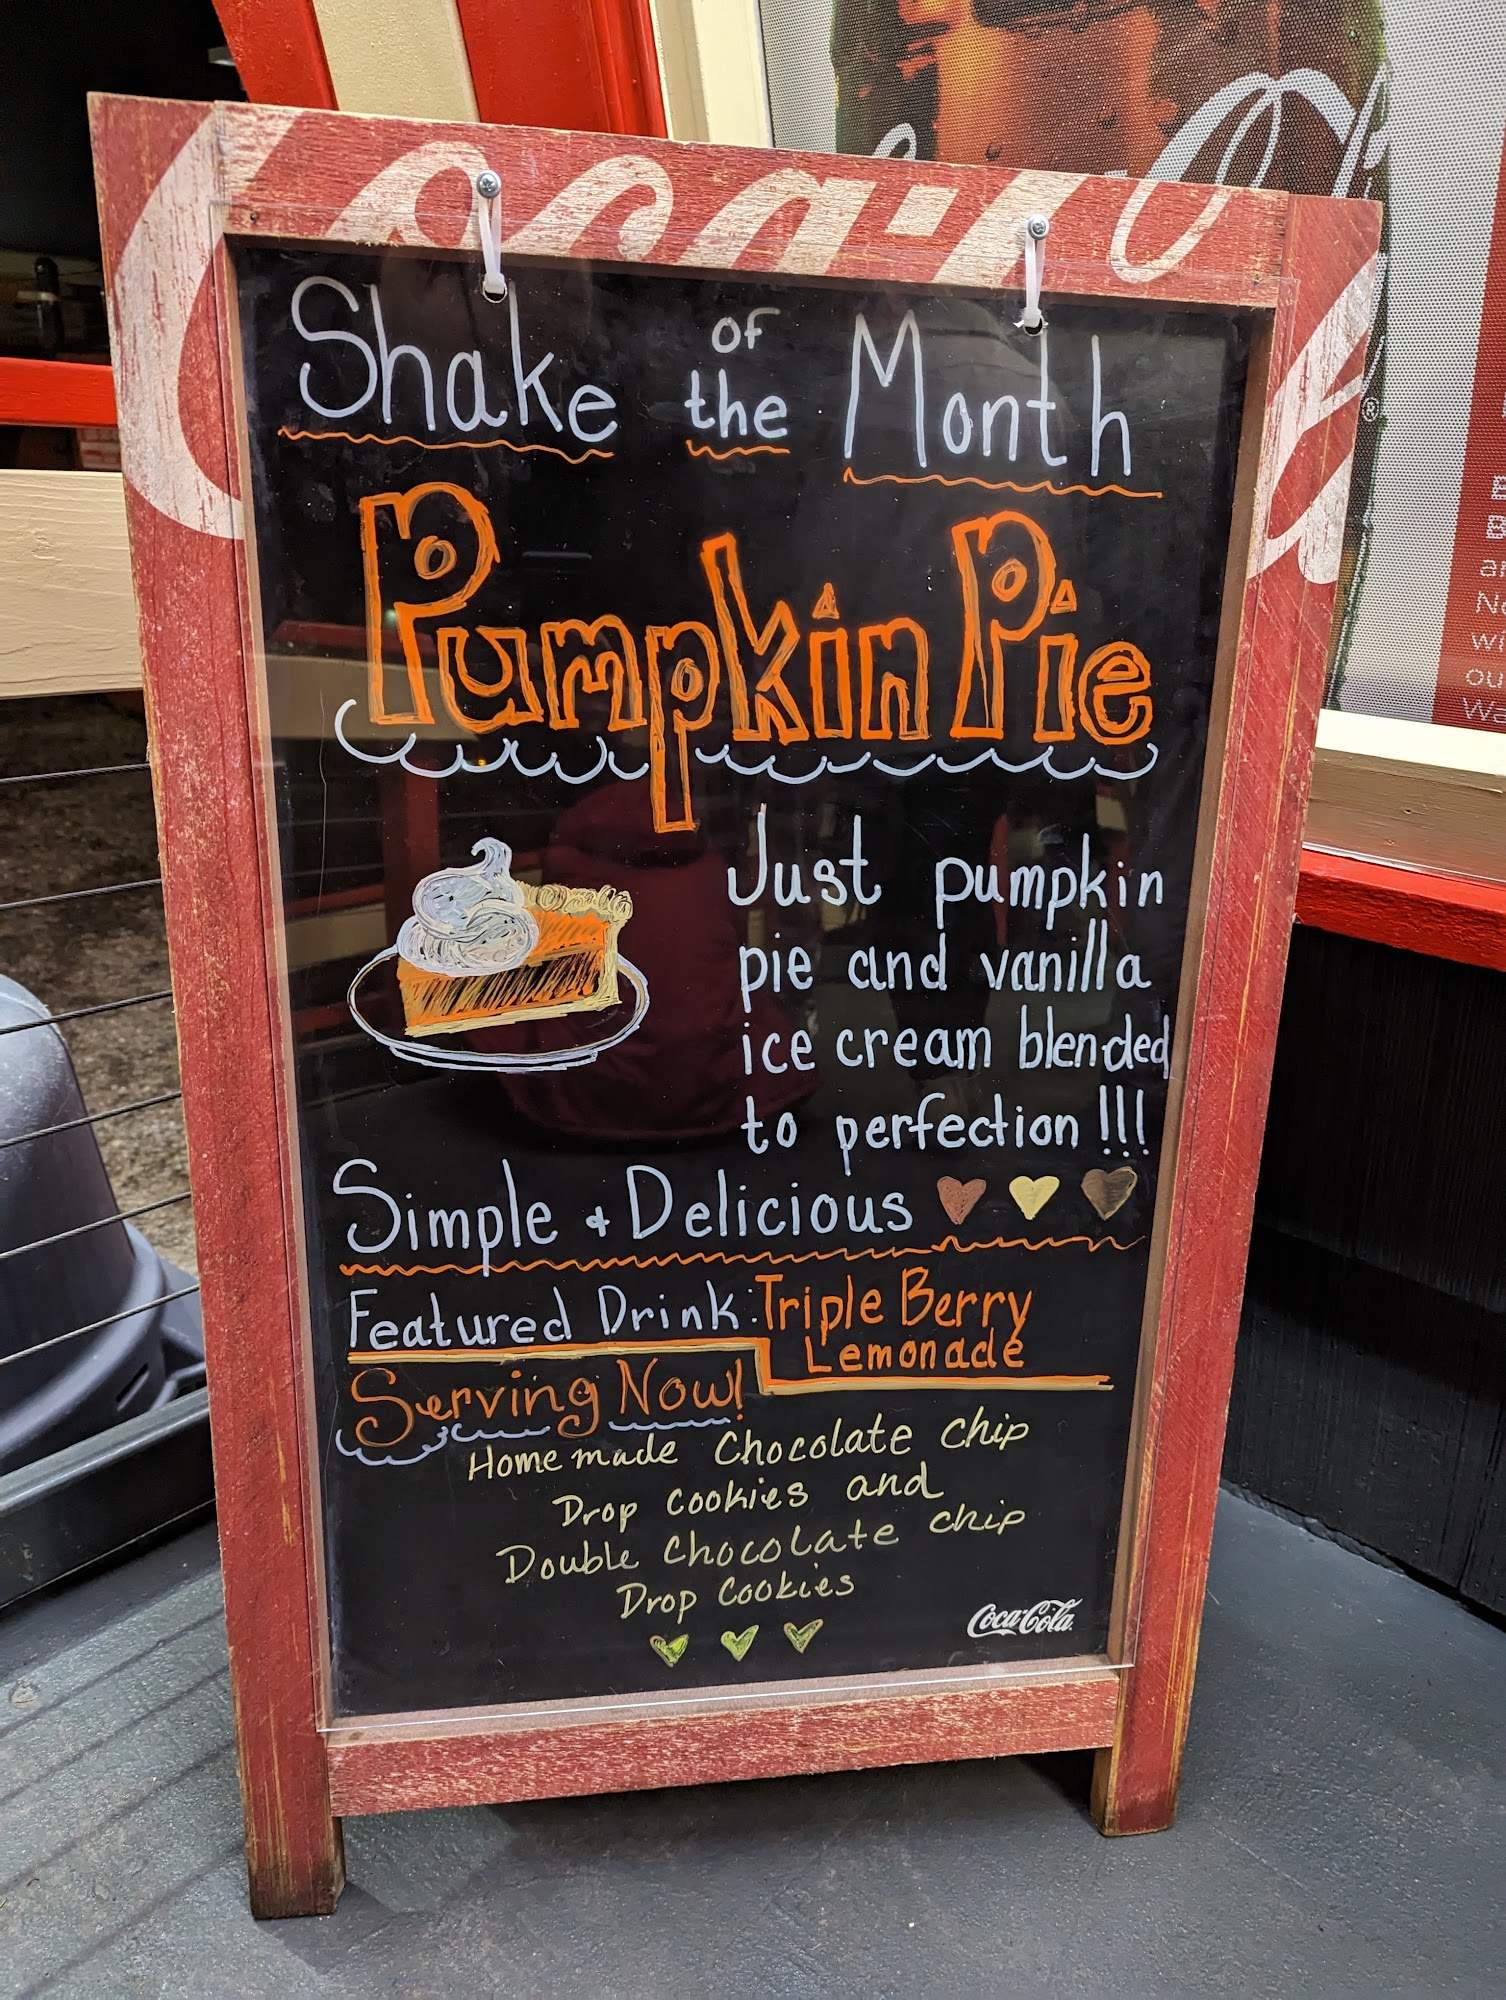 Coca-Cola
Shake of the Month
Pumpkin Pie
Just pumpkin
pie and vanilla
ice cream blended
to perfection!!!
Simple + Delicious
Featured Drink: Triple Berry
Lemonade
Serving Now!
Homemade Chocolate chip
Drop cookies and
Double Chocolate chip
Drop Cookies
Coca-Cola